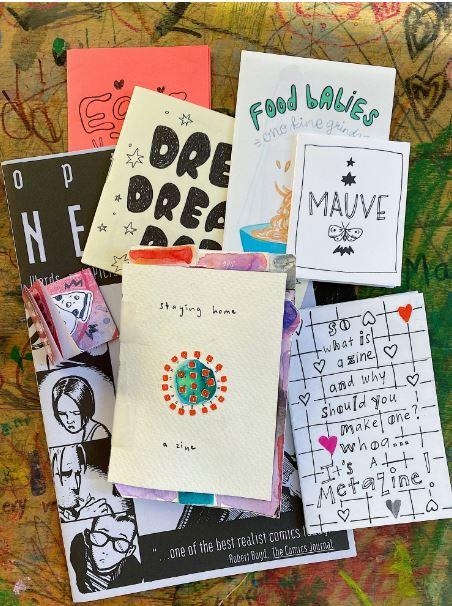 Food babies
ono kine
DRE
DREA
MAUVE
O P
N E
Words
staying home
a zine
So
what is
a zine
and why
should you
make one?
whoa...
It's A
MetaZine!
"...one of the best realist comics
-Robert Boyd, The Comics Journal